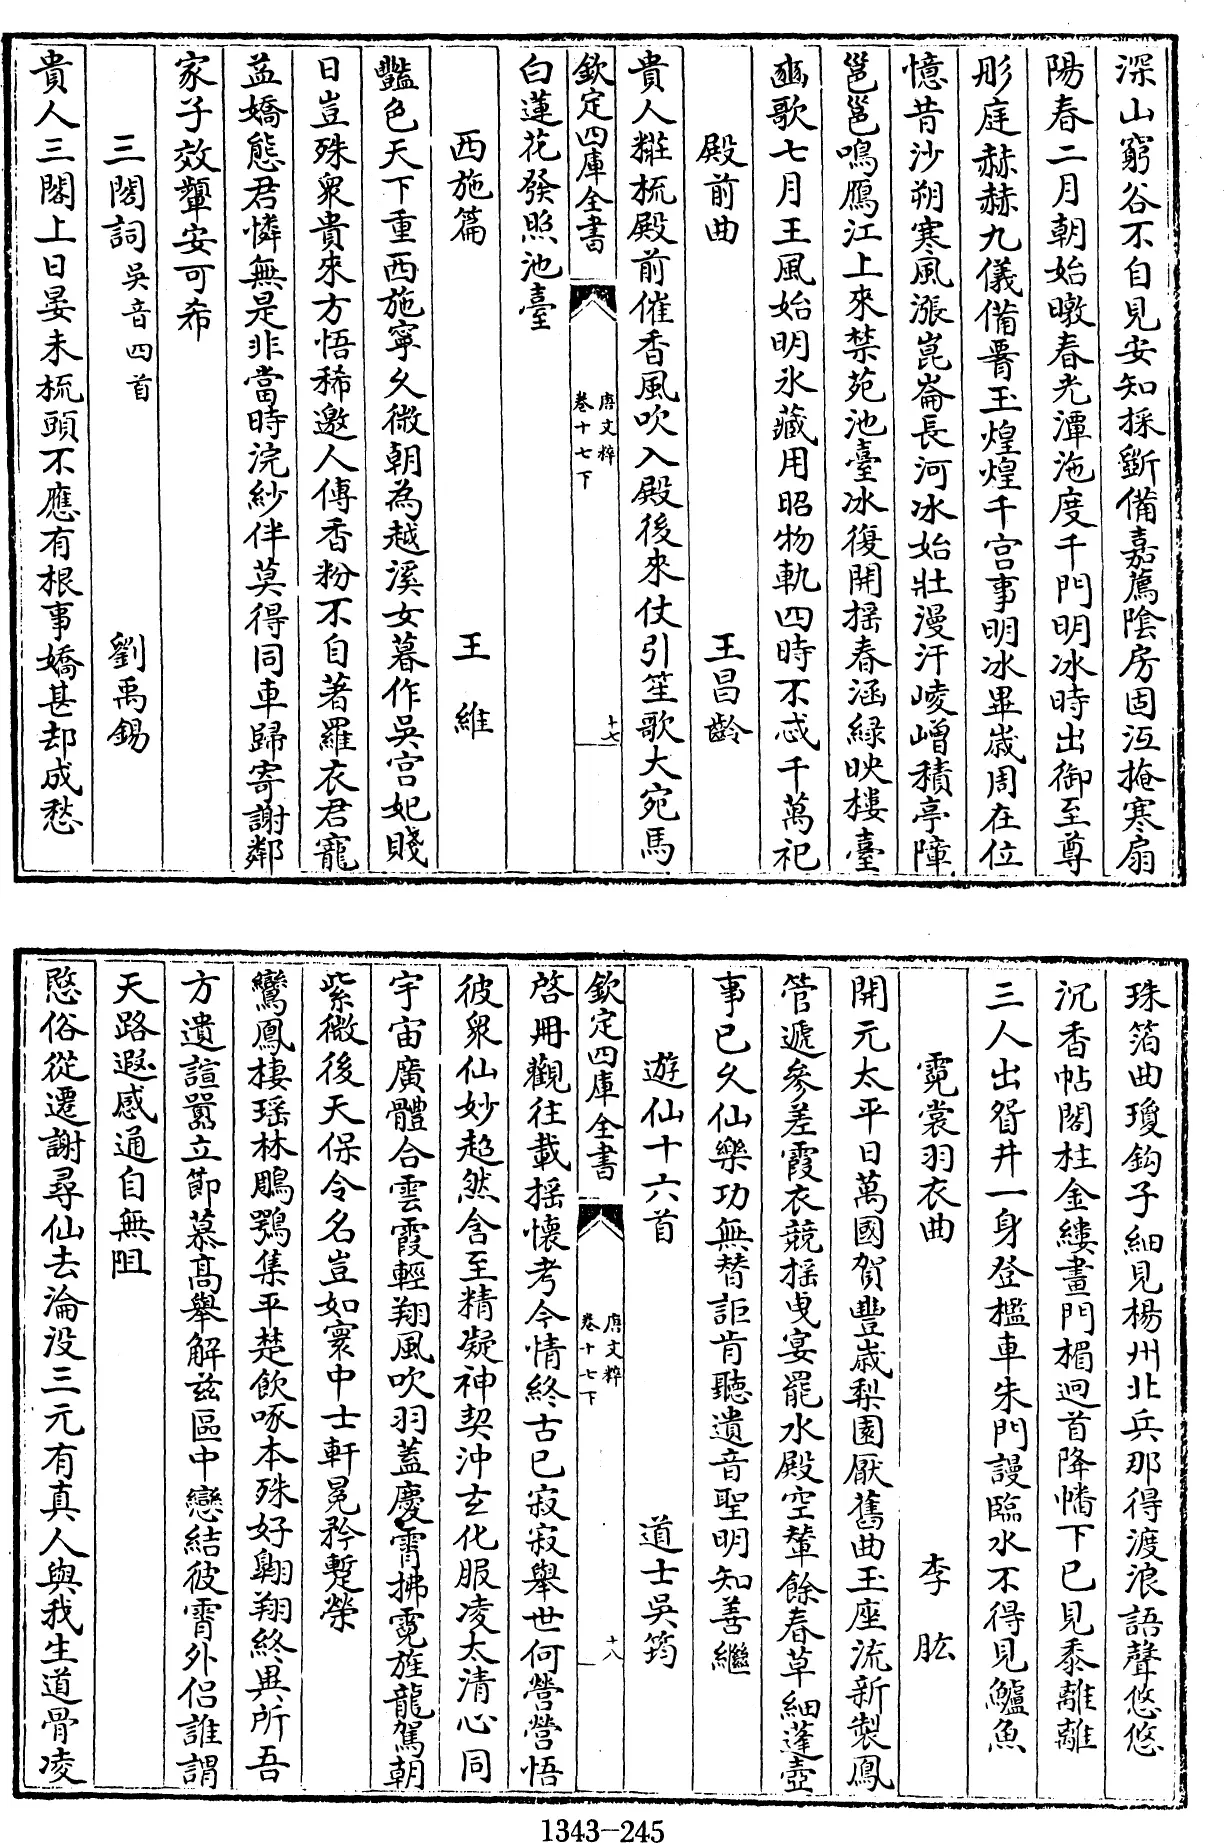 深山窮谷不自見安知採斲備嘉薦陰房固沍掩寒扇
陽春二月朝始暾春光潭沲度千門明冰時出御至尊
彤庭赫赫九儀備胥玉煌煌千宫事明冰畢歳周在位
憶昔沙朔寒風漲崑崙長河冰始壯漫汗崚嶒積亭障
嗈嗈鳴鴈江上來禁苑池臺冰復開摇春涵緑映樓臺
豳歌七月王風始明氷藏用昭物軌四時不忒千萬祀
殿前曲　王昌齡
貴人糚梳殿前催香風吹入殿後來仗引笙歌大宛馬
欽定四庫全書　唐文粹卷十七下　十七
白蓮花發照池臺
西施篇　王維
豔色天下重西施寧久微朝為越溪女暮作吳宫妃賤
日豈殊衆貴來方悟稀邀人傅香粉不自著羅衣君寵
益嬌態君憐無是非當時浣紗伴莫得同車歸寄謝鄰
家子效顰安可希
三閣詞吳音四首　劉禹錫
貴人三閣上日晏未梳頭不應有根事嬌甚却成愁
珠箔曲瓊鈎子細見楊州北兵那得渡浪語聲悠悠
沉香帖閣柱金縷畫門楣迴首降幡下已見黍離離
三人出眢井一身登檻車朱門謾臨水不得見鱸魚
霓裳羽衣曲　李肱
開元太平日萬國賀豐歳梨園厭舊曲玉座流新製鳳
管遞參差霞衣競摇曳宴罷水殿空輦餘春草細蓬壺
事已久仙樂功無替詎肯聽遺音聖明知善繼
遊仙十六首　道士吳筠
欽定四庫全書　唐文粹卷十七下　十八
啓冊觀往載摇懷考今情終古已寂寂舉世何營營悟
彼衆仙妙超然含至精凝神契沖玄化服凌太清心同
宇宙廣體合雲霞輕翔風吹羽蓋慶霄拂霓旌龍駕朝
紫微後天保令名豈如寰中士軒冕矜蹔榮
鸞鳳棲瑶林鵰鶚集平楚飲啄本殊好翺翔終異所吾
方遺諠囂立節慕髙舉解兹區中戀結彼霄外侣誰謂
天路遐感通自無阻
愍俗從遷謝尋仙去淪没三元有真人與我生道骨凌
1343-245